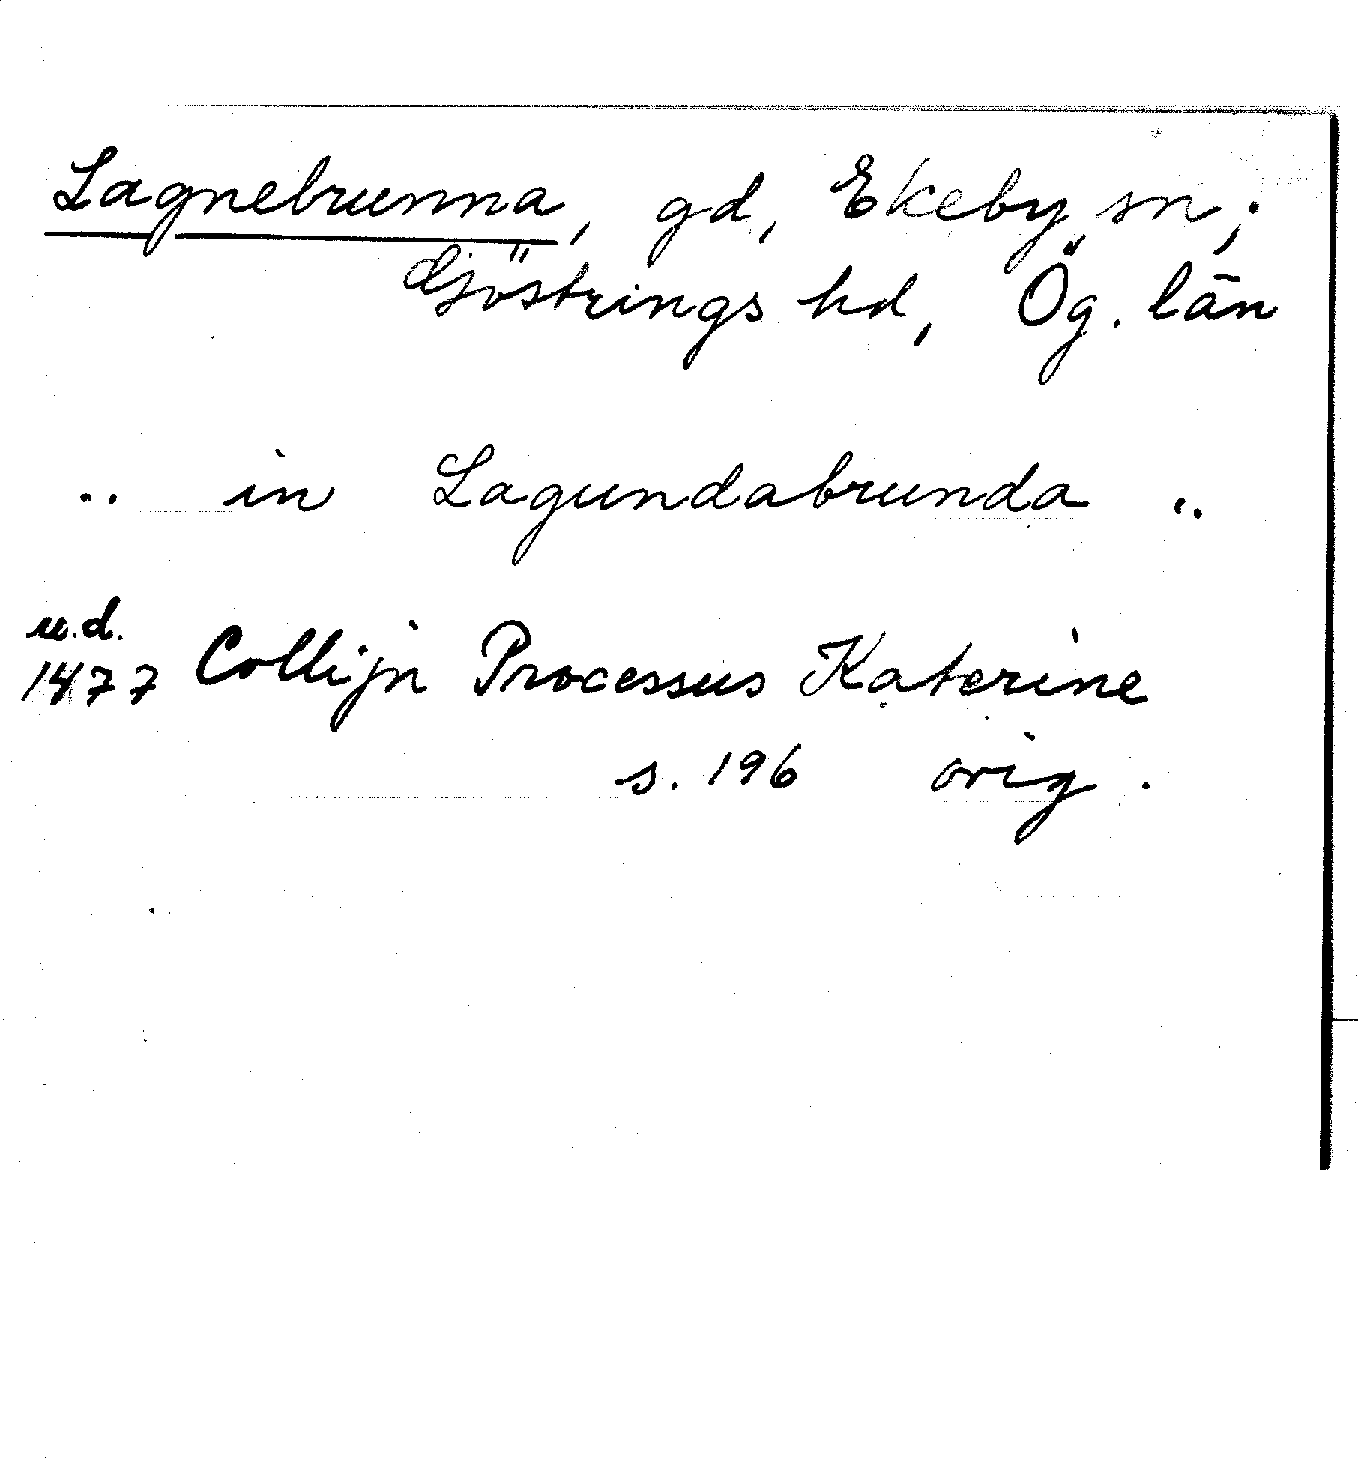 Lagnebrunna, gd, Ekeby sn,
Göstrings hd, Ög. län
.. in Lagundabrunda ..
u.d.
1477 Collijn Processus Katerine
s. 196 orig.